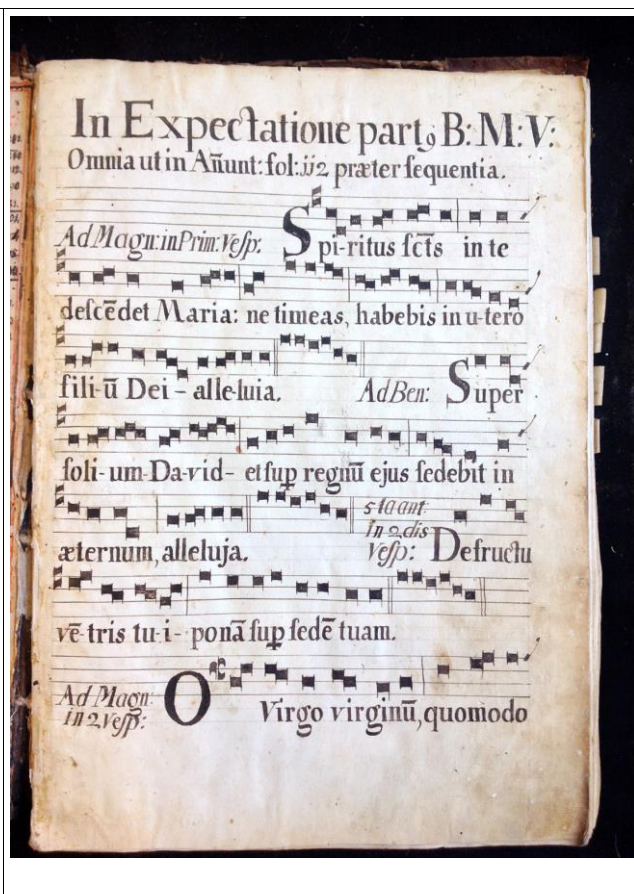 In Expectatione part9 B: M: V:
Omnia ut in Añunt: fol: ii2 præter sequentia.
Ad Magn: in Prim: Vesp: Spi-ritus sc̄ts in te
descēdet Maria: ne timeas, habebis in u-tero
fili-ū Dei - alle-luia. Ad Ben: Super
soli-um-Da-vid- et sup regnū ejus sedebit in
æternum, alleluja. 5ta ant: in 2dis Vesp: De fructu
vē-tris tu-i- ponā sup sedē tuam.
Ad Magn: in 2 Vesp: O Virgo virginū, quomodo